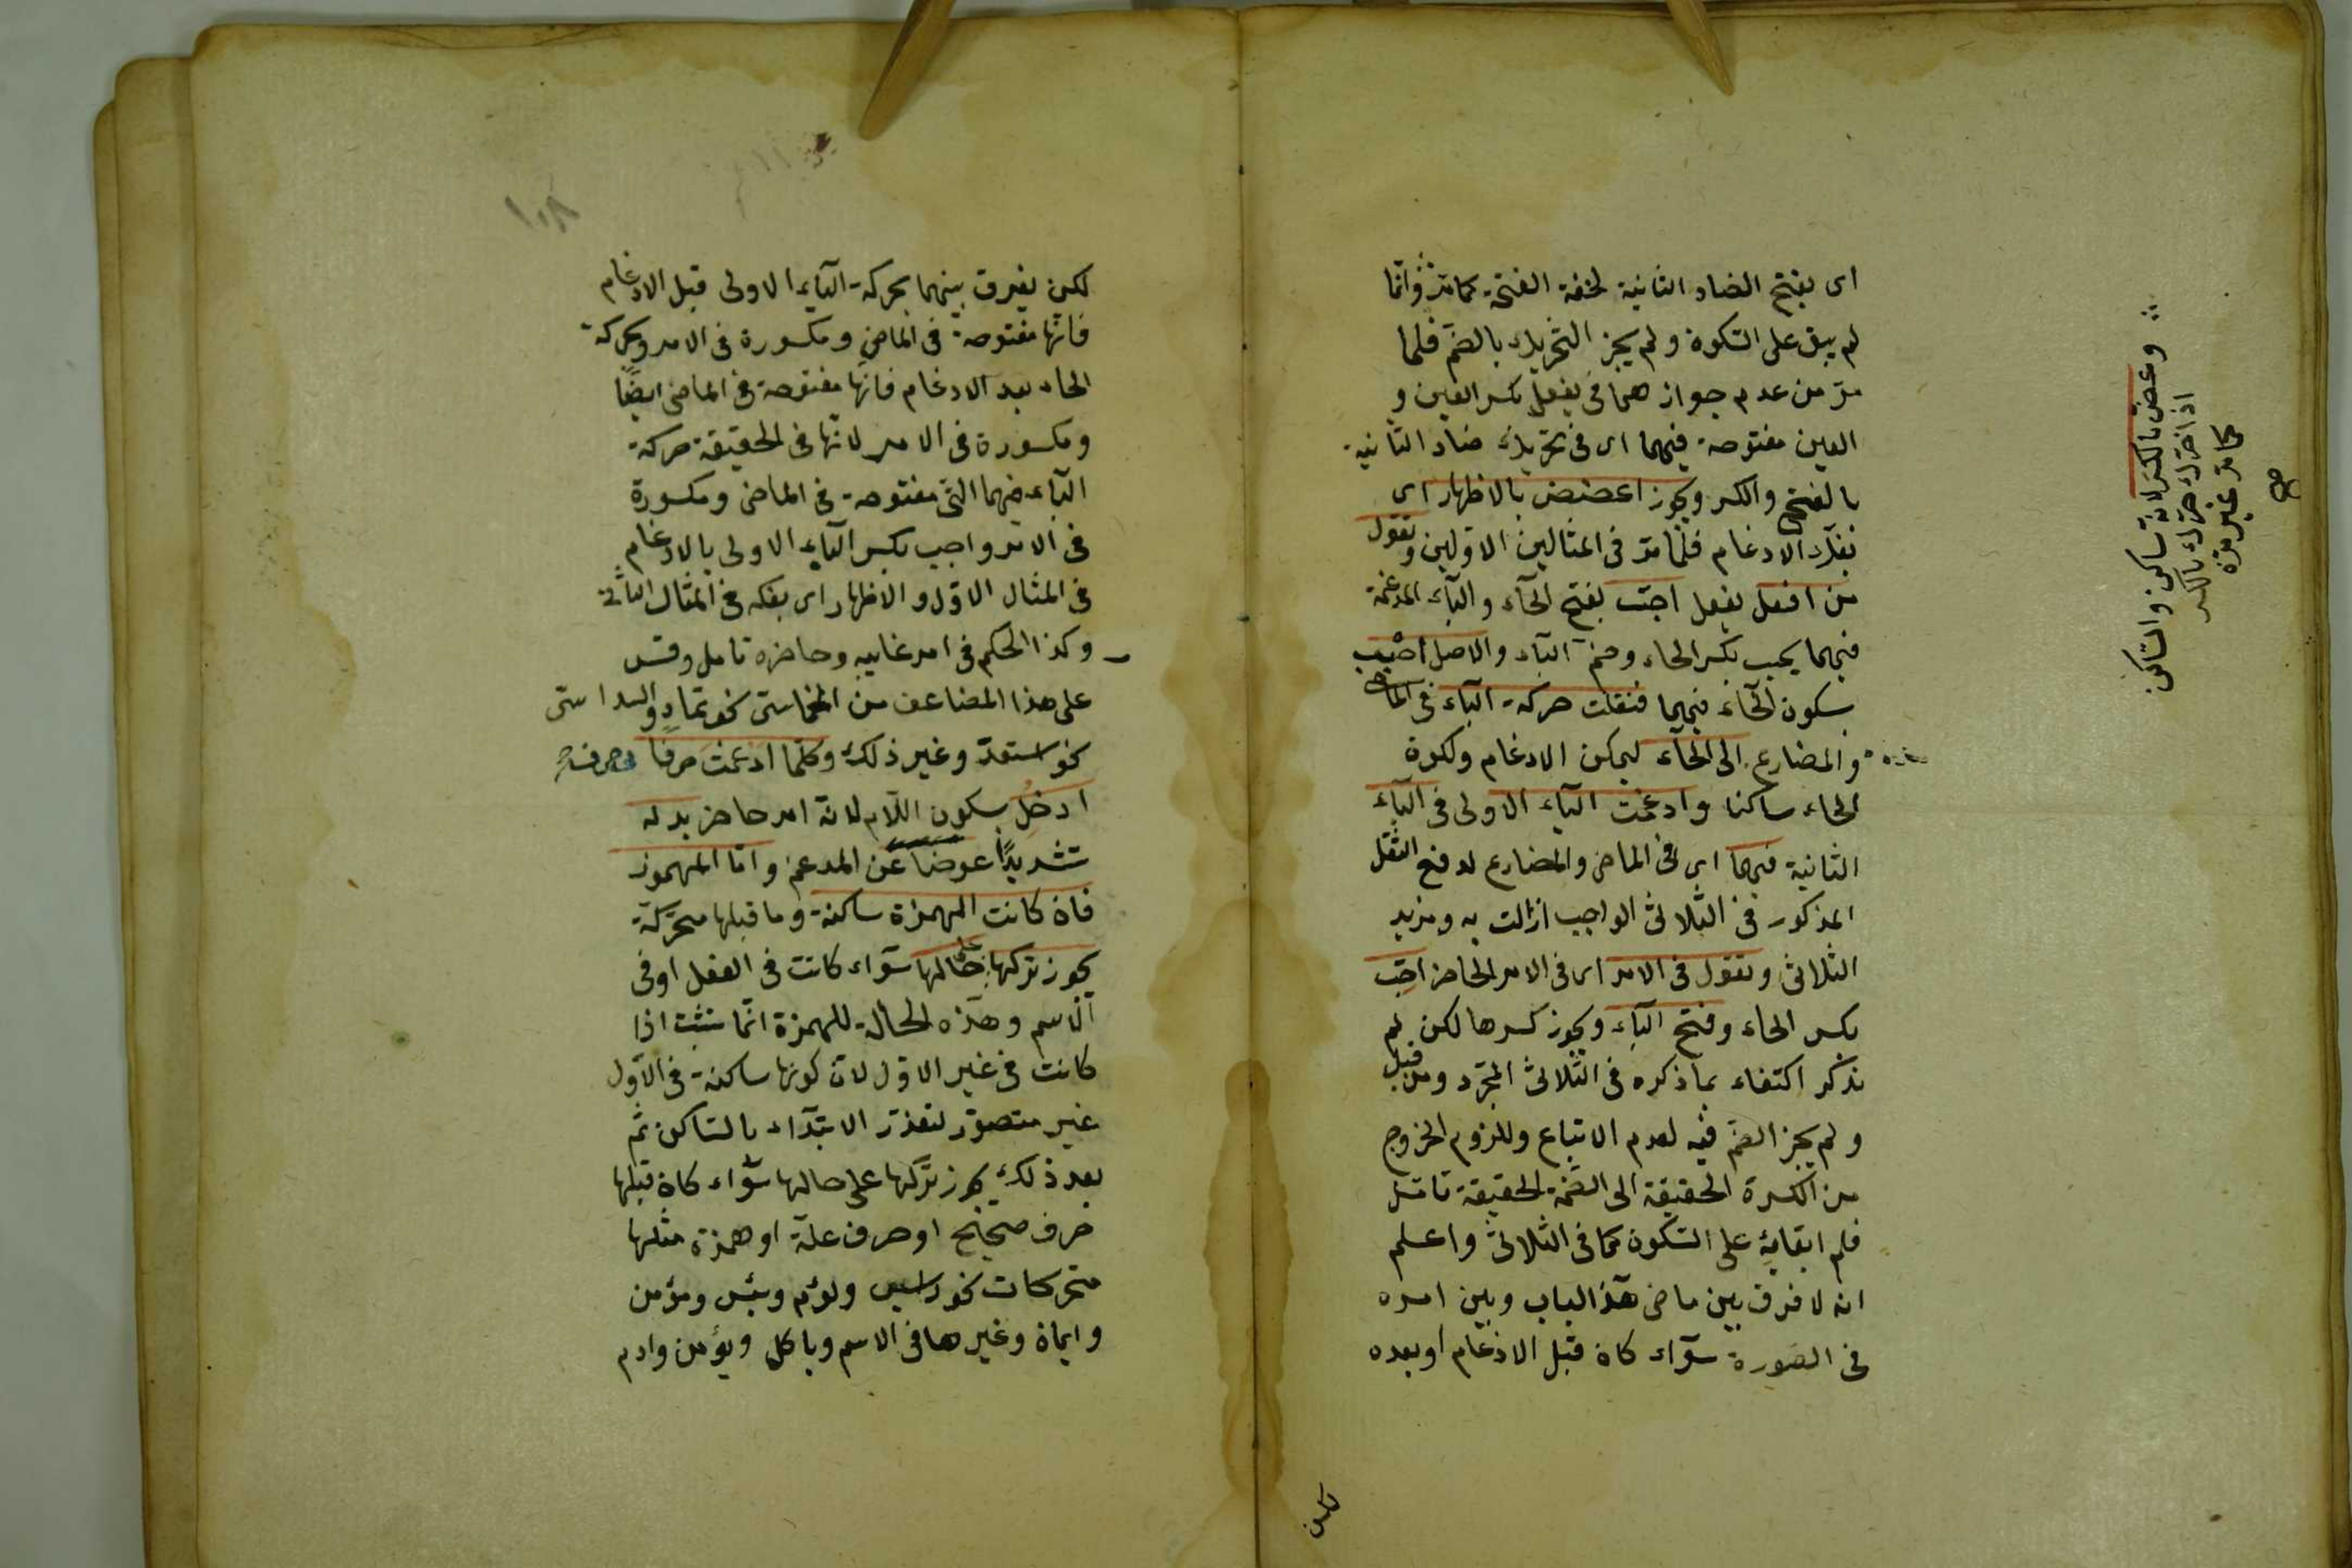 اى بفتح الضاد الثانية لخفة الفتحة كما مر وانما
لم يبق على السكون ولم يجز التحريك بالضم فلما
مر من عدم جوازهما فى يفعل بكسر العين و
العين مفتوحة فيهما اى فى تحريك ضاد الثانية
بالفتح والكسر ويجوز اعضض بالاظهار اى
بفك الادغام فلما مر فى المثالين الاولين وتقول
من افعل يفعل احبّ بفتح الحآء والبآء المدغمة
فيهما يحب بكسر الحاء وضم البآء والاصل احبب
بسكون الحآء فيهما فنقلت حركة البآء فى الماضى
والمضارع الى الحآء ليمكن الادغام ولكون
الحاء ساكنا وادغمت البآء الاولى فى البآء
الثانية فيهما اى فى الماضى والمضارع لدفع الثقل
المذكور فى الثلاثى الواجب ازالت به ومزيد
الثلاثى وتقول فى الامر اى فى الامر الحاضر احبّ
بكسر الحاء وفتح البآء ويجوز كسرها لكن لم
يذكر اكتفاء بما ذكره فى الثلاثى المجرد ومن قبل
ولم يجز الضم فيه لعدم الاتباع وللزوم الخروج
من الكسرة الحقيقة الى الضمة الحقيقة تأمل
فلم ابقايه على السكون كما فى الثلاثى واعلم
انه لا فرق بين ماضى هذا الباب وبين امره
فى الصورة سوآء كان قبل الادغام او بعده
وعض بالكسر لانه ساكن والساكن
اذا حرك حرك بالكسر
كما مر غير مرة
صح
لكن
١٠٨
لكن يفرق بينهما بحركة البآء الاولى قبل الادغام
فانها مفتوحة فى الماضى ومكسورة فى الامر وبحركة
الحاء بعد الادغام فانها مفتوحة فى الماضى ايضًا
ومكسورة فى الامر لانها فى الحقيقة حركة
البآء فيهما التى مفتوحة فى الماضى ومكسورة
فى الامر واجب بكسر البآء الاولى بالادغام
فى المثال الاول والاظهار اى بفكه فى المثال الثانى
وكذا الحكم فى امر غايبه وحاضره تامل وقس
على هذا المضاعف من الخماسى نحو تمادّ والسداسى
نحو استعدّ وغير ذلك وكلما ادغمت حرفا فى حرف
ادخل بسكون اللام لانه امر حاضر بدله
تشديدًا عوضا عن المدغم واما المهموز
فان كانت الهمزة ساكنة وما قبلها متحركة
يجوز تركها على حالها سوآء كانت فى الفعل او فى
الاسم وهذه الحالة للهمزة انما تثبت اذا
كانت فى غير الاول لان كونها ساكنة فى الاول
غير متصور لتعذر الابتدآء بالساكن ثم
بعد ذلك يجوز تركها على حالها سوآء كان قبلها
حرف صحيح او حرف علة او همزة مثلها
متحركات نحو راس ولؤم وبئس ومؤمن
وايمان وغيرها فى الاسم وياكل ويؤمن وادم